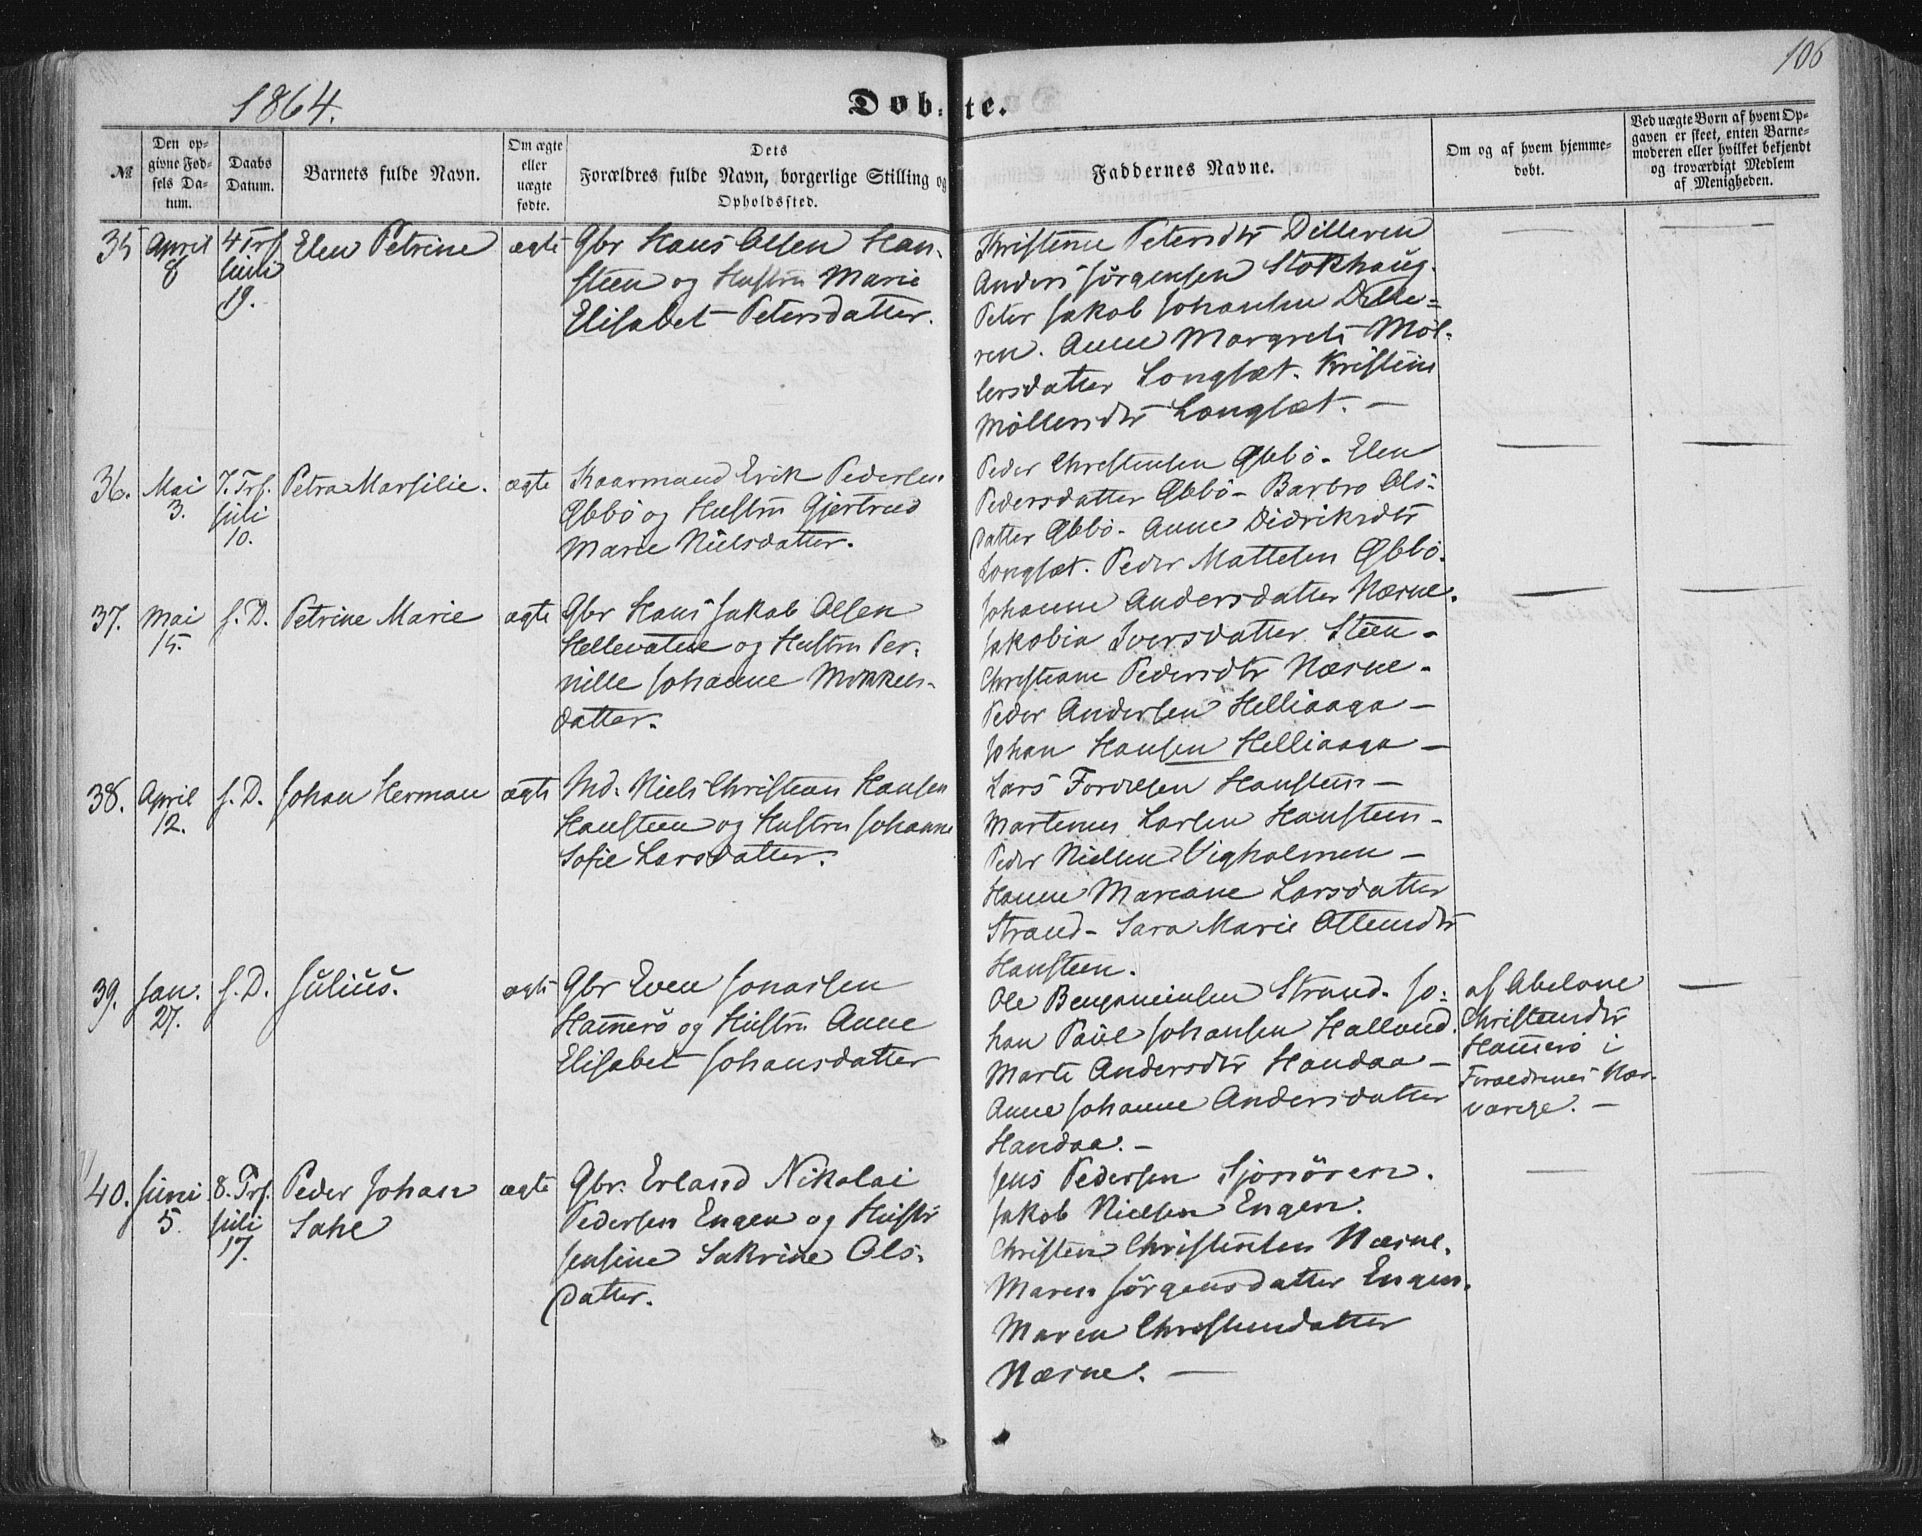 106
1864.
Døbte.
№
Den opgivne Fødsels Datum.
Daabs Datum.
Barnets fulde Navn.
Om ægte eller uægte fødte.
Dets Forældres fulde Navn, borgerlige Stilling og Opholdssted.
Faddernes Navne.
Om og af hvem hjemmedøbt.
Ved uægte Børn af hvem Opgaven er skeet, enten Barnemoderen eller hvilket bekjendt og troværdigt Medlem af Menigheden.
35 April 8 4 Trf. Juli 19. Elen Petrine ægte
Gbr Hans Olsen Han-
steen og Hustru Marie
Elisabet Petersdatter.
Kristenne Petersdtr Dilleren
Anders Jørgensen Stokhaug.
Peter Jakob Johansen Dille=
ren. Anne Margrete Møl-
lersdatter Langsæt. Kristine
Møllersdtr Langsæt. —
36. Mai 3. 7. Trf. Juli 10. Petra Marsilie. ægte
Kaarmand Erik Pedersen
Øbbø og Hustru Gjertrud
Marie Nielsdatter.
Peder Christensen Øbbø - Elen
Pedersdatter Øbbø - Barbro Ols-
datter Øbbø. Anne Didriksdtr
Langsæt. Peder Mattesen Øbbø.
37. Mai 15. s. D. Petrine Marie ægte
Gbr Hans Jakob Olsen
Hellevatne og Hustru Per-
nille Johanne Mikkels-
datter.
Johanne Andersdatter Næsne.
Jakobia Iversdatter Steen -
Christiane Pedersdtr Næsne -
Peder Andersen Helliaaga -
Johan Hansen Helliaaga -
38. April 12. s. D. Johan Herman ægte
Ind. Niels Christian Hansen
Hansteen og Hustru Johanne
Sofie Larsdatter.
Lars Torolfsen Hansteen -
Martenus Larsen Hansteen -
Peder Nielsen Vigholmen -
Hanne Mariane Larsdatter
Strand - Sara Marie Ottensdtr
Hansteen.
39. Jan. 27. s. D. Julius. ægte
Gbr Even Jonassen
Hammerø og Hustru Anne
Elisabet Johansdatter
Ole Benjaminsen Strand. Jo-
han Paul Johansen Halland.
Marte Andersdtr Handaa -
Anne Johanne Andersdatter
Handaa. -
af Abelone
Christensdtr
Hammerø i
Forældrenes Nær-
værelse. -
40. Juni 5. 8. Trf. Juli 17. Peder Johan
Sahl ægte
Gbr. Erland Nikolai
Pedersen Engen og Hustr
Jensine Sakrine Ols-
datter.
Jens Pedersen Sjonøren.
Jakob Nielsen Engen.
Christen Christensen Næsne.
Maren Jørgensdatter Engen.
Maren Christensdatter
Næsne. —